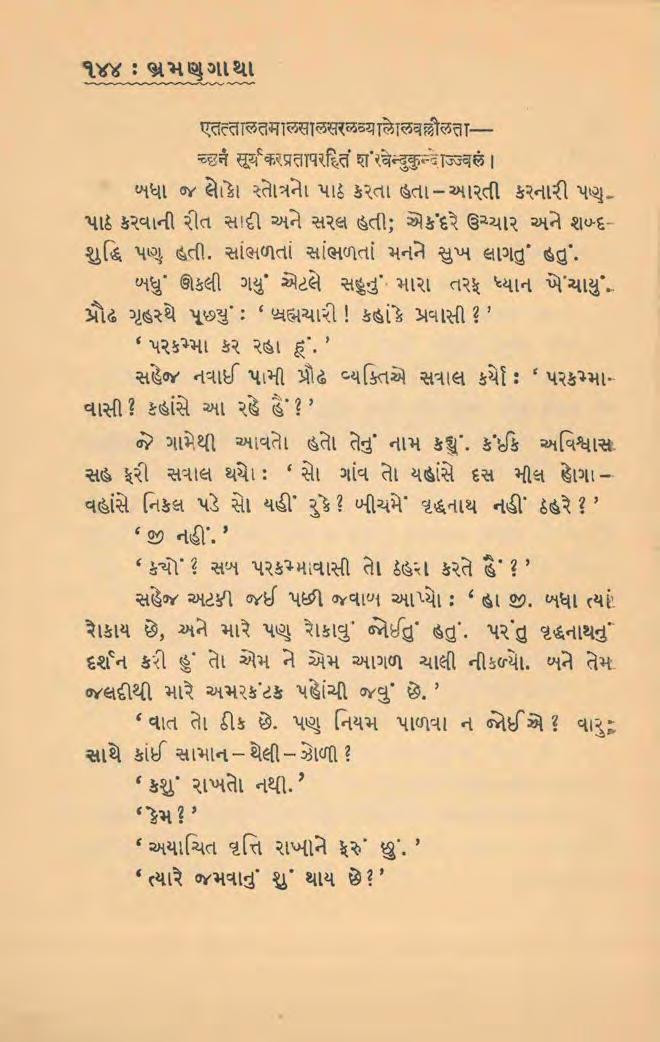 ૧૪૪ : ભ્રમણગાથા
एतत्तालतमालसालसरलव्यालोलवल्लीलता—
च्छन्नं सूर्यकरप्रतापरहितं शंखेन्दुकुन्दोज्ज्वलं ।
બધા જ લોકો સ્તોત્રનો પાઠ કરતા હતા–આરતી કરનારી પણ.
પાઠ કરવાની રીત સાદી અને સરલ હતી; એકંદરે ઉચ્ચાર અને શબ્દ-
શુદ્ધિ પણ હતી. સાંભળતાં સાંભળતાં મનને સુખ લાગતું હતું.
બધું ઊકલી ગયું એટલે સહુનું મારા તરફ ધ્યાન ખેંચાયું.
પ્રૌઢ ગૃહસ્થે પૂછયું : ‘ બ્રહ્મચારી ! કહાંકે પ્રવાસી ? ’
‘ પરકમ્મા કર રહા હૂં. ’
સહેજ નવાઈ પામી પ્રૌઢ વ્યક્તિએ સવાલ કર્યો : ‘ પરકમ્મા-
વાસી ? કહાંસે આ રહે હૈં ? ’
જે ગામેથી આવતો હતો તેનું નામ કહ્યું. કંઈક અવિશ્વાસ
સહ ફરી સવાલ થયો : ‘ સો ગાંવ તો યહાંસે દસ મીલ હોગા –
વહાંસે નિકલ પડે સો યહીં રુકે ? બીચમેં વૃદ્ધનાથ નહીં ઠહરે ? ’
‘ જી નહીં. ’
‘ ક્યોં ? સબ પરકમ્માવાસી તો ઠહરા કરતે હૈં ? ’
સહેજ અટકી જઈ પછી જવાબ આપ્યો : ‘ હા જી. બધા ત્યાં
રોકાય છે, અને મારે પણ રોકાવું જોઈતું હતું. પરંતુ વૃદ્ધનાથનું
દર્શન કરી હું તો એમ ને એમ આગળ ચાલી નીકળ્યો. બને તેમ
જલદીથી મારે અમરકંટક પહોંચી જવું છે. ’
‘ વાત તો ઠીક છે. પણ નિયમ પાળવા ન જોઈએ ? વારુ;
સાથે કાંઈ સામાન – થેલી – ઝોળી ?
‘ કશું રાખતો નથી. ’
‘ કેમ ? ’
‘ અયાચિત વૃત્તિ રાખીને ફરું છું. ’
‘ ત્યારે જમવાનું શું થાય છે ? ’